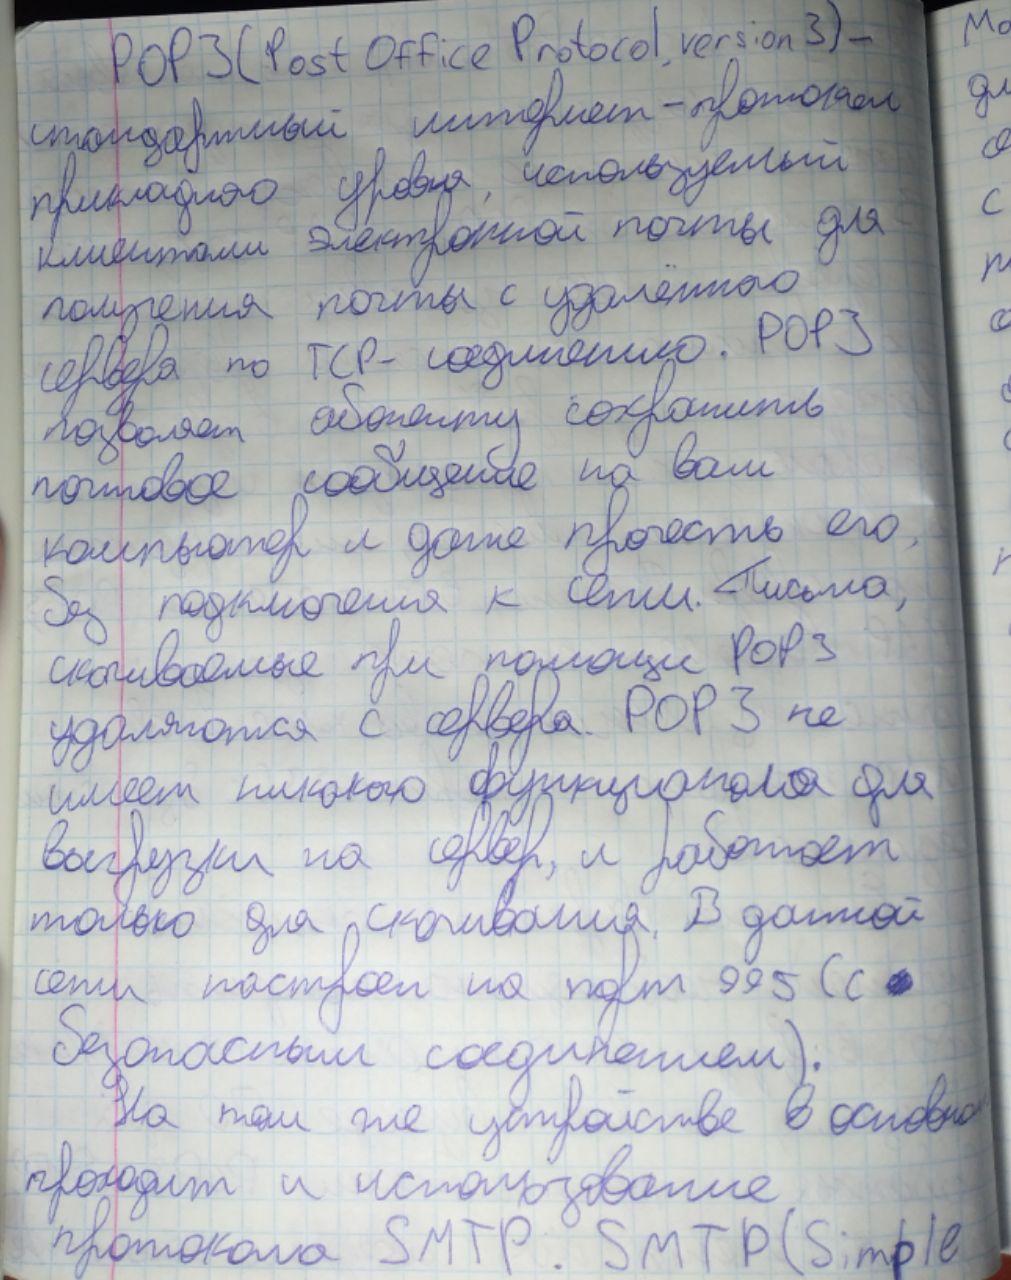 POP3 (Post Office Protocol, version 3) –
стандартный интернет-протокол
прикладного уровня, используемый
клиентами электронной почты для
получения почты с удалённого
сервера по TCP-соединению. POP3
позволяет абоненту сохранить
почтовое сообщение на вам
компьютер и даже прочесть его,
без подключения к сети. Письма,
скачиваемые при помощи POP3
удаляются с сервера. POP3 не
имеет никакого функционала для
выгрузки на сервер, и работает
только для скачивания. В данной
сети настроен на порт 995 (с
безопасным соединением).
На том же устройстве в основном
проходит и использование
протокола SMTP. SMTP (Simple
Мо
дл
с